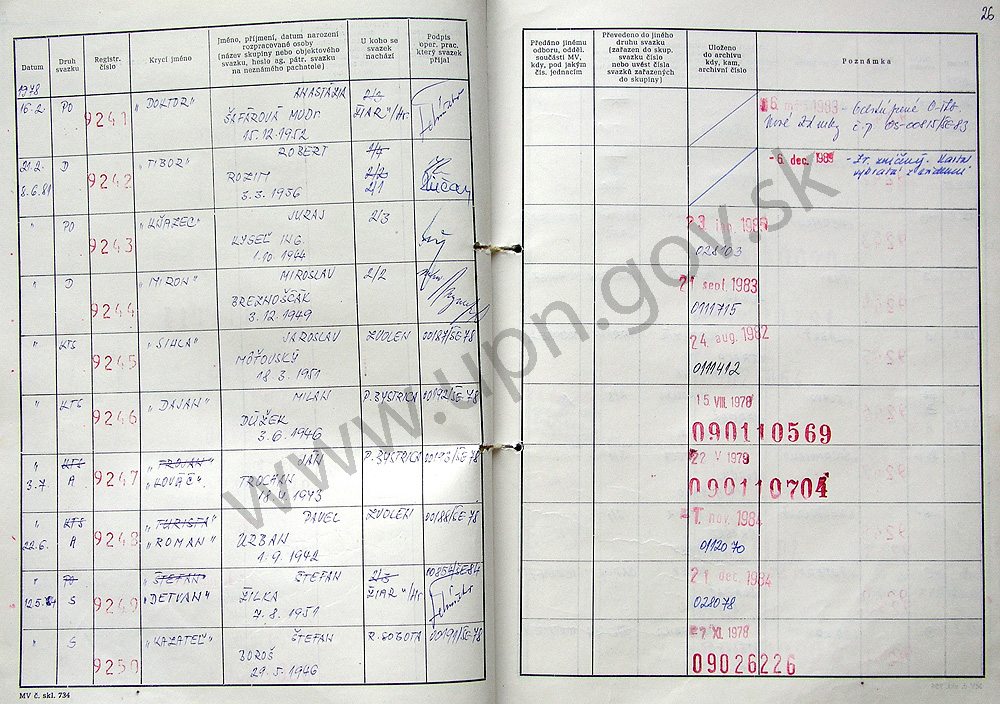 26
Datum
Druh svazku
Registr. číslo
Krycí jméno
Jméno, příjmení, datum narození
rozpracované osoby
(název skupiny nebo objektového
svazku, heslo ag. pátr. svazku
na neznámého pachatele)
U koho se
svazek
nachází
Podpis
oper. prac.
který svazek
přijal
Předáno jinému
odboru, odděl.
součásti MV,
kdy, pod jakým
čís. jednacím
Převedeno do jiného
druhu svazku
(zařazen do skup.
svazku číslo
nebo uvést čísla
svazků zařazených
do skupiny)
Uloženo
do archivu
kdy, kam,
archivní číslo
Poznámka
1978
16.2. PO 9241 "DOKTOR" ANASTÁZIA 2/3
ŠAFÁROVÁ MUDr. ŽIAR n/Hr.
15.12.1952
č.p. OS-00815/ŠE-83
21.2. D 9242 "TIBOR" ROBERT
8.6.81 ROZIM 2/2
3.3.1956 2/1
- 6. dec. 1985
" PO 9243 "KŇAZEC" JURAJ 2/3
KYSEĽ ING.
1.10.1944
028103
" D 9244 "MIRON" MIROSLAV 2/2
BREZNOŠČÁK
3.12.1949
21 sept. 1983
0111715
" KTS 9245 "SIHLA" JAROSLAV ZVOLEN 00187/ŠE-78
MÔŤOVSKÝ
18.3.1951
24. aug. 1982
0111412
" KTS 9246 "DAJAN" MILAN P. BYSTRICA 00192/ŠE-78
DŮŽEK
3.6.1946
15. VIII. 1978
090110569
" KTS 9247 "TROJAN" JÁN P. BYSTRICA 00193/ŠE-78
3.7. A "KOVÁČ"
22 V 1979
090110704
" KTS 9248 "TURISTA" PAVEL ZVOLEN 00188/ŠE-78
22.6. A "ROMAN" URBAN
1.9.1942
- 1. nov. 1984
0112070
" PO 9249 "ŠTEFAN" ŠTEFAN 2/3 00854/ŠE-84
S "DETVAN" ŽILKA ŽIAR n/Hr.
7.8.1951
21 dec. 1984
028078
" S 9250 "KAZATEĽ" ŠTEFAN R. SOBOTA 00191/ŠE-78
BOROŠ
29.5.1946
-7 XI. 1978
09026226
MV č. skl. 734
www.upn.gov.sk